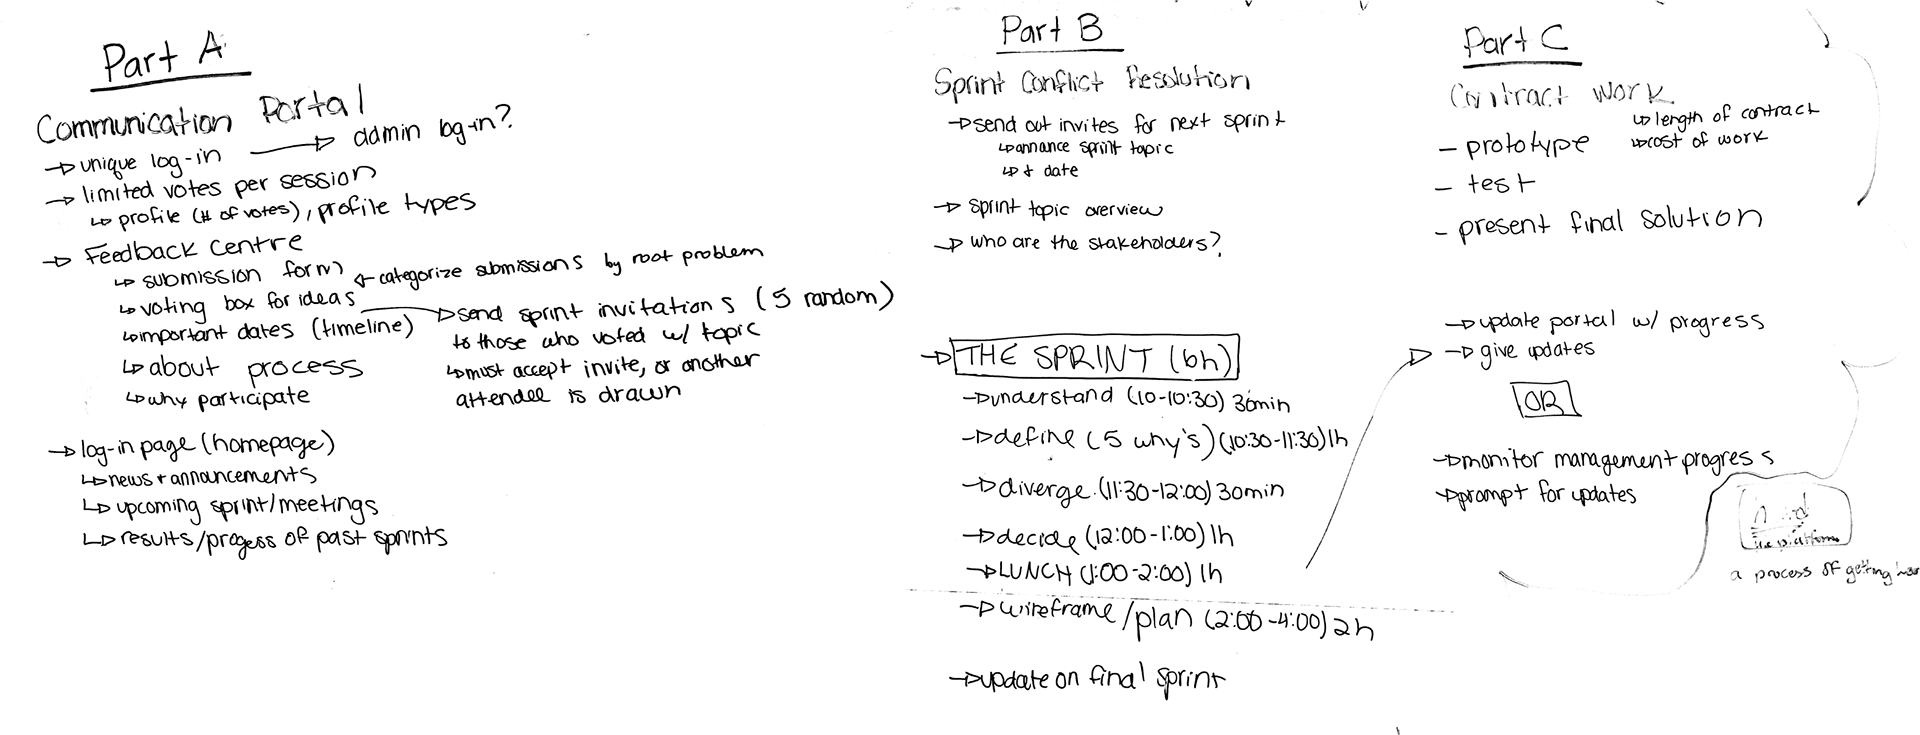 Part A
Communication Portal
→ unique log-in → admin log-in?
→ limited votes per session
↳ profile (# of votes), profile types
→ Feedback centre
↳ submission form ← categorize submissions by root problem
↳ voting box for ideas → send sprint invitations (5 random)
to those who voted w/ topic
↳ must accept invite, or another
attendee is drawn
↳ important dates (timeline)
↳ about process
↳ why participate
→ log-in page (homepage)
↳ news + announcements
↳ upcoming sprint/meetings
↳ results/progess of past sprints
Part B
Sprint Conflict Resolution
→ send out invites for next sprint
↳ annance sprint topic
↳ + date
→ sprint topic overview
→ who are the stakeholders?
→ THE SPRINT (6h)
→ understand (10-10:30) 30min
→ define (5 why's) (10:30-11:30) 1h
→ diverge (11:30-12:00) 30min
→ decide (12:00-1:00) 1h
→ LUNCH (1:00-2:00) 1h
→ wireframe/plan (2:00-4:00) 2h
→ update on final sprint
Part C
Contract Work
↳ length of contract
↳ cost of work
- prototype
- test
- present final solution
→ update portal w/ progress
→ give updates
OR
→ monitor management progress
→ prompt for updates
a process of getting